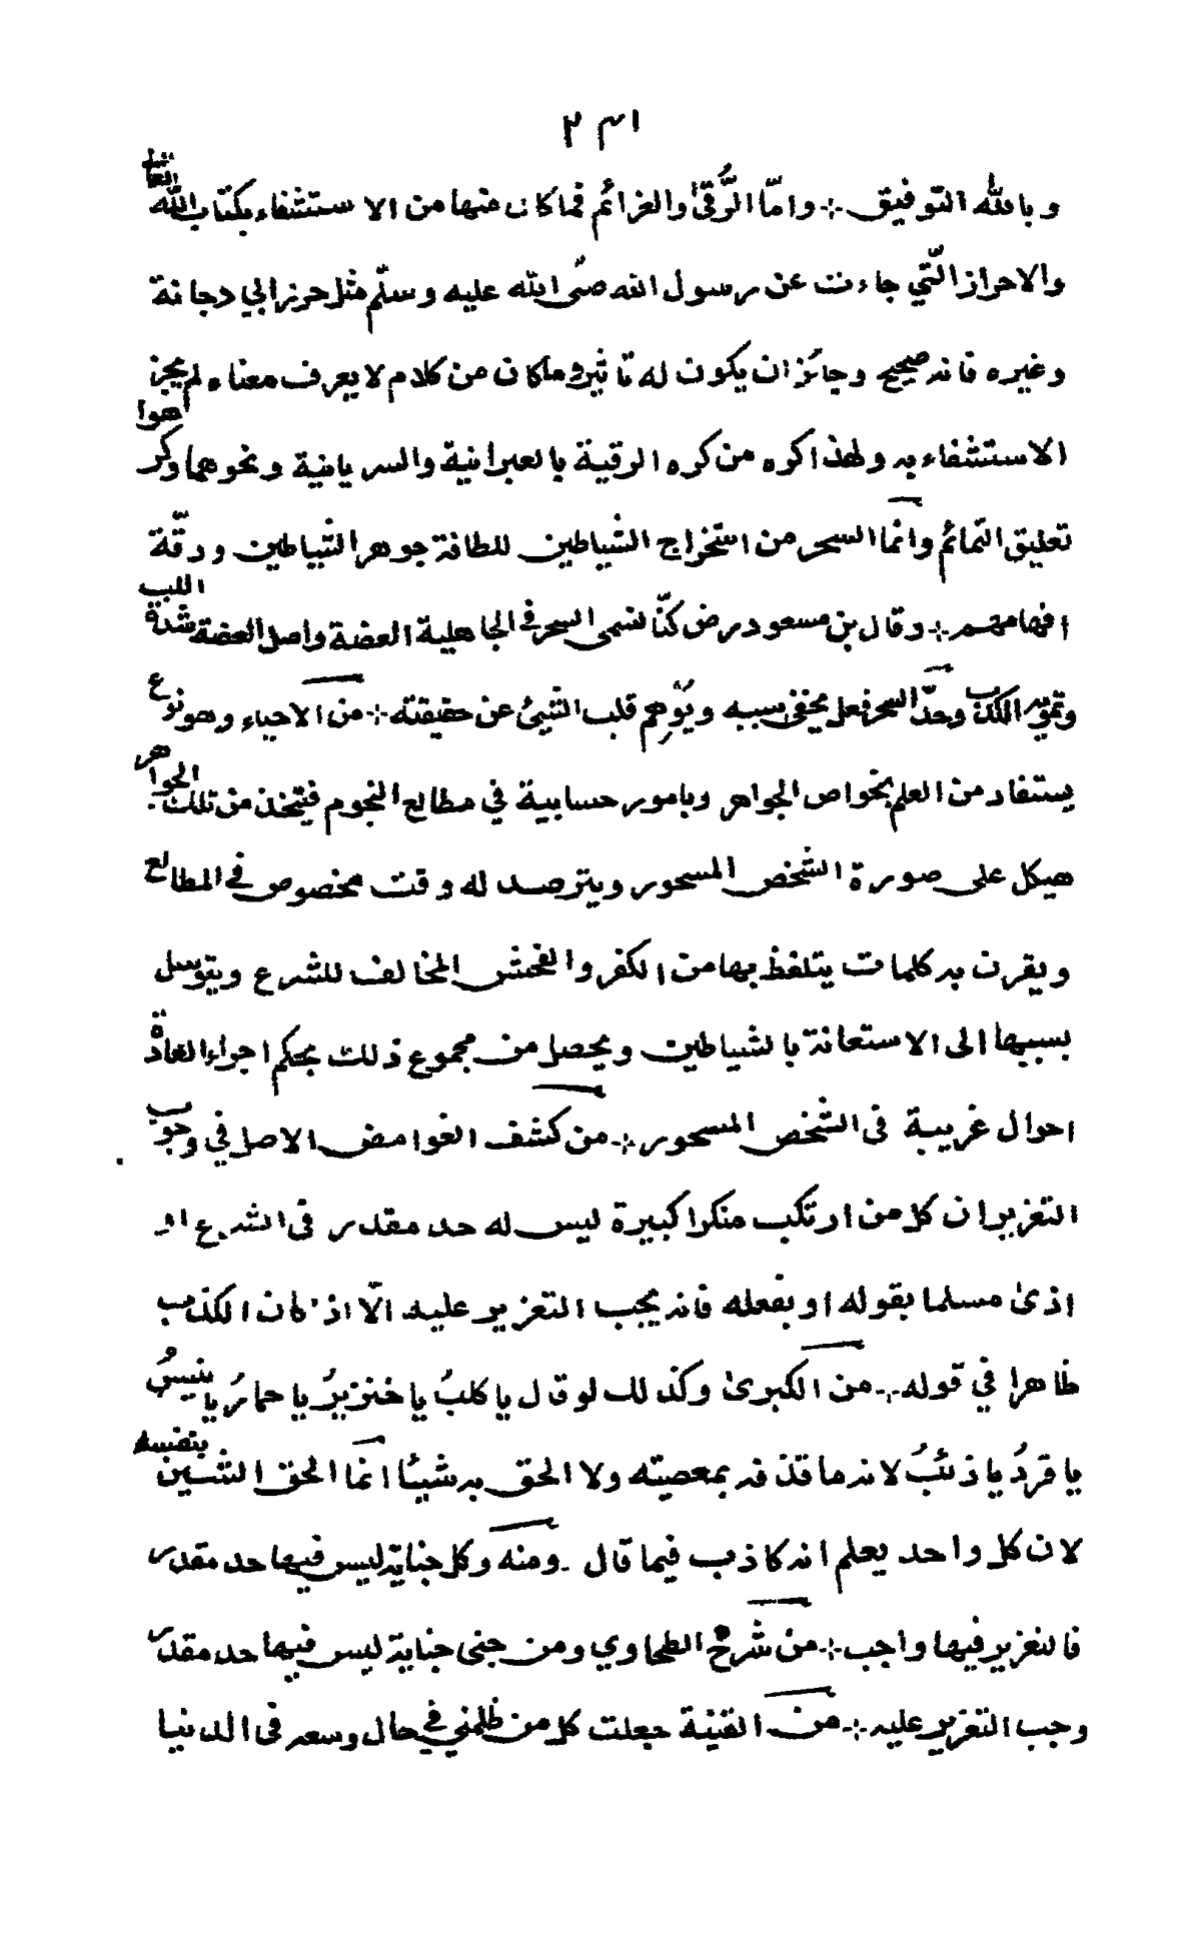 ٢٣١
وبالله التوفيق ÷ وامّا الرُّقىٰ والعزائم فما كان منها من الاستشفاء بكتاب الله تعا
والاحراز الّتي جاءت عن رسول الله صلّى الله عليه وسلّم مثل حرز ابي دجانة
وغيره فانه صحيح وجائز ان يكون له تاثير وما كان من كلام لا يعرف معناه لم يجز
الاستشفاء به ولهذا كره من كره الرقية بالعبرانية والسريانية ونحوهما وكرهوا
تعليق التمائم وانما السحر من استخراج الشياطين للطافة جوهر الشياطين ودقّة
افهامهم ÷ وقال بن مسعود رض كنّا نسمى السحر في الجاهلية العضة واصل العضة شدة
وتمويه الكذب وحدّ السحر فعل يخفى سببه ويُوهِم قلب الشيئ عن حقيقته ÷ من الاحياء وهو نوع
يستفاد من العلم بخواص الجواهر وبامور حسابية في مطالع النجوم فيتخذ من تلك الجواهر
هيكل على صورة الشخص المسحور ويترصد له وقت مخصوص في المطالع
ويقرن به كلمات يتلفظ بها من الكفر والفحش المخالف للشرع ويتوسل
بسببها الى الاستعانة بالشياطين ويحصل من مجموع ذلك بحكم اجراء العادة
احوال غريبة فى الشخص المسحور ÷ من كشف الغوامض الاصل في وجوب
التعزير ان كل من ارتكب منكرا كبيرة ليس له حد مقدر فى الشرع او
اذىٰ مسلما بقوله او بفعله فانه يجب التعزير عليه الّا اذ كان الكذب
ظاهرا في قوله ÷ من الكبرىٰ وكذلك لو قال يا كلبُ يا خنزيرُ يا حمارُ يا تيسُ
يا قردُ يا ذئبُ لانه ما قذفه بمعصيته ولا الحق به شيئا انما الحق الشين بنفسه
لان كل واحد يعلم انه كاذب فيما قال . ومنه وكل جناية ليس فيها حد مقدر
فالتعزير فيها واجب ÷ من شرح الطحاوي ومن جنى جناية ليس فيها حد مقدر
وجب التعزير عليه ÷ من القنية جعلت كل من ظلمني في حال وسعه فى الدنيا